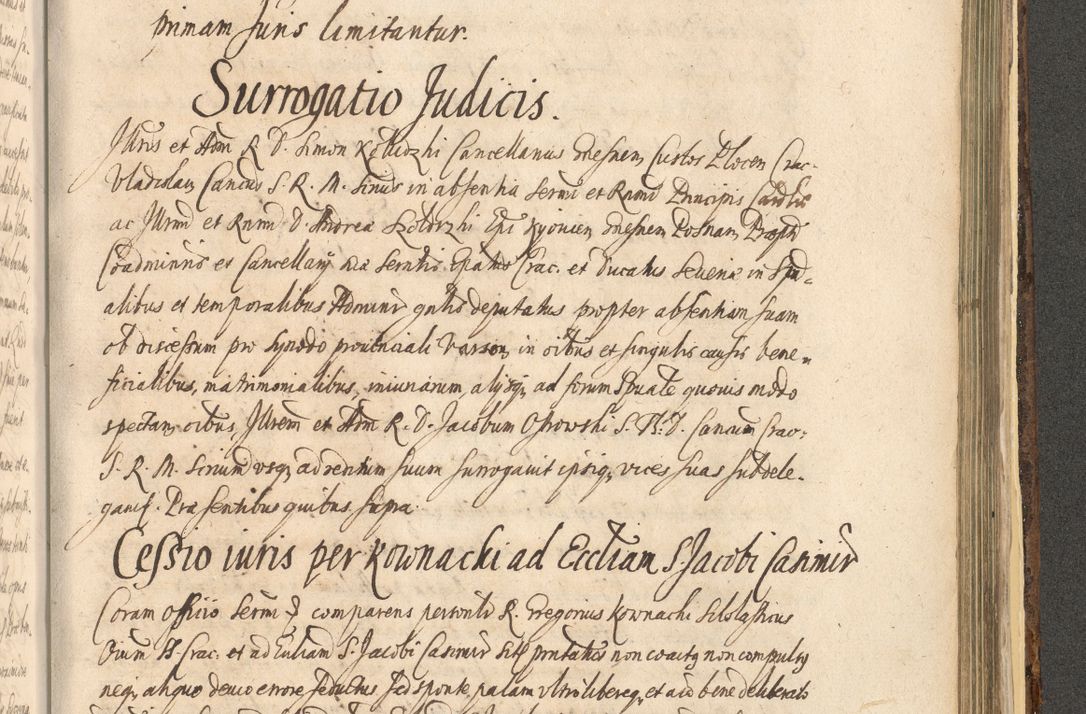 primam Juris limitantur.
Surrogatio Judicis.
Illris et Adm R. D. Simon Kołudzki Cancellarius Gnesnen Custos Plocen Crac.
Vladislau Cancus S. R. M. Srius in absentia Sermi et Rnmi Principis
ac Illrmi et Rnmi D. Andrea Szoldrzki Epi Kyouien Gnesnen Posnan Praepti
Coadminris et Cancellarij Epatus Crac. et Ducatus Seueriae in Spu-
alibus et temporalibus Adminr gnlis deputatus propter absentiam suam
ob discessum pro synodo prouinciali Varsou in oibus et singulis causis bene-
ficialibus, matrimonialibus, iniuriarum alijsq, ad forum Spuale quouis modo
spectan oibus, Illrem et Adm R. D. Jacobum Ostrowski S. Th. D. Cancum Crac.
S. R. M. Srium usq, ad reditum suum surrogauit ipsiq, vices suas subdele-
gauit. Praesentibus quibus supra.
Cessio iuris per Kownacki ad Eccliam S. Jacobi Casimir
Coram Officio Sermi comparens personlr R. Gregorius Kownacki Scholasticus
Oium SS. Crac. et ad Eccliam S. Jacobi Casimir non coactq non compulsq
neq, aliquo deuio errore seductus sed sponte, palam vltro libereq, et aio bene deliberato